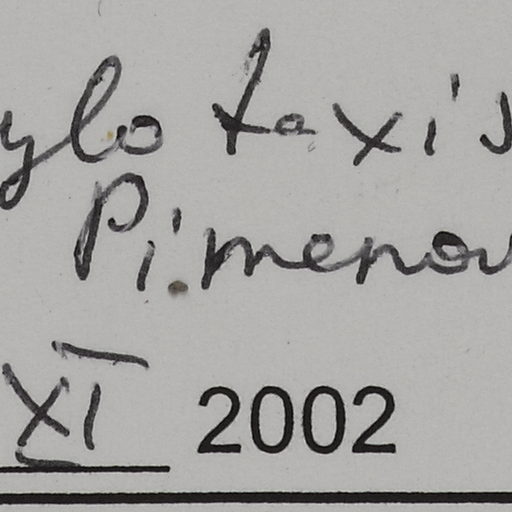 ylotaxis
Pimenov
XI 2002